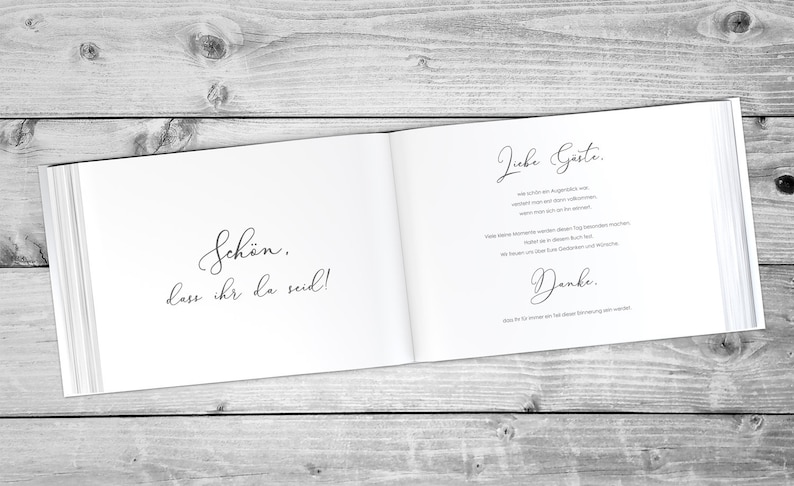 Schön,
dass ihr da seid!
Liebe Gäste,
wie schön ein Augenblick war,
versteht man erst dann vollkommen,
wenn man sich an ihn erinnert.
Viele kleine Momente werden diesen Tag besonders machen,
Haltet sie in diesem Buch fest.
Wir freuen uns über Eure Gedanken und Wünsche.
Danke,
dass Ihr für immer ein Teil dieser Erinnerung sein werdet.